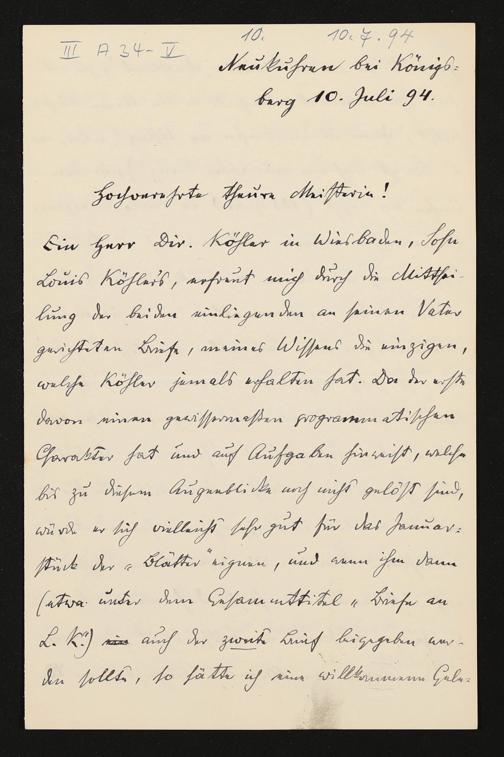 III A 34-V 10. 10.7.94
Neukuhren bei Königs=
berg 10. Juli 94.
Hochverehrte theure Meisterin!
Ein Herr Dir. Köhler in Wiesbaden, Sohn
Louis Köhlers, erfreut mich durch die Mitthei-
lung der beiden einliegenden an seinen Vater
gerichteten Briefe, meines Wissens die einzigen,
welche Köhler jemals erhalten hat. Da der erste
davon einen gewissermaßen programmatischen
Charakter hat und auf Aufgaben hinweist, welche
bis zu diesem Augenblicke noch nicht gelöst sind,
würde er sich vielleicht sehr gut für das Januar=
stück der „Blätter" eignen, und wenn ihm dann
(etwa unter dem Gesammttitel „Briefe an
L. K.") auch der zweite Brief beigegeben wer-
den sollte, so hätte ich eine willkommene Gele=